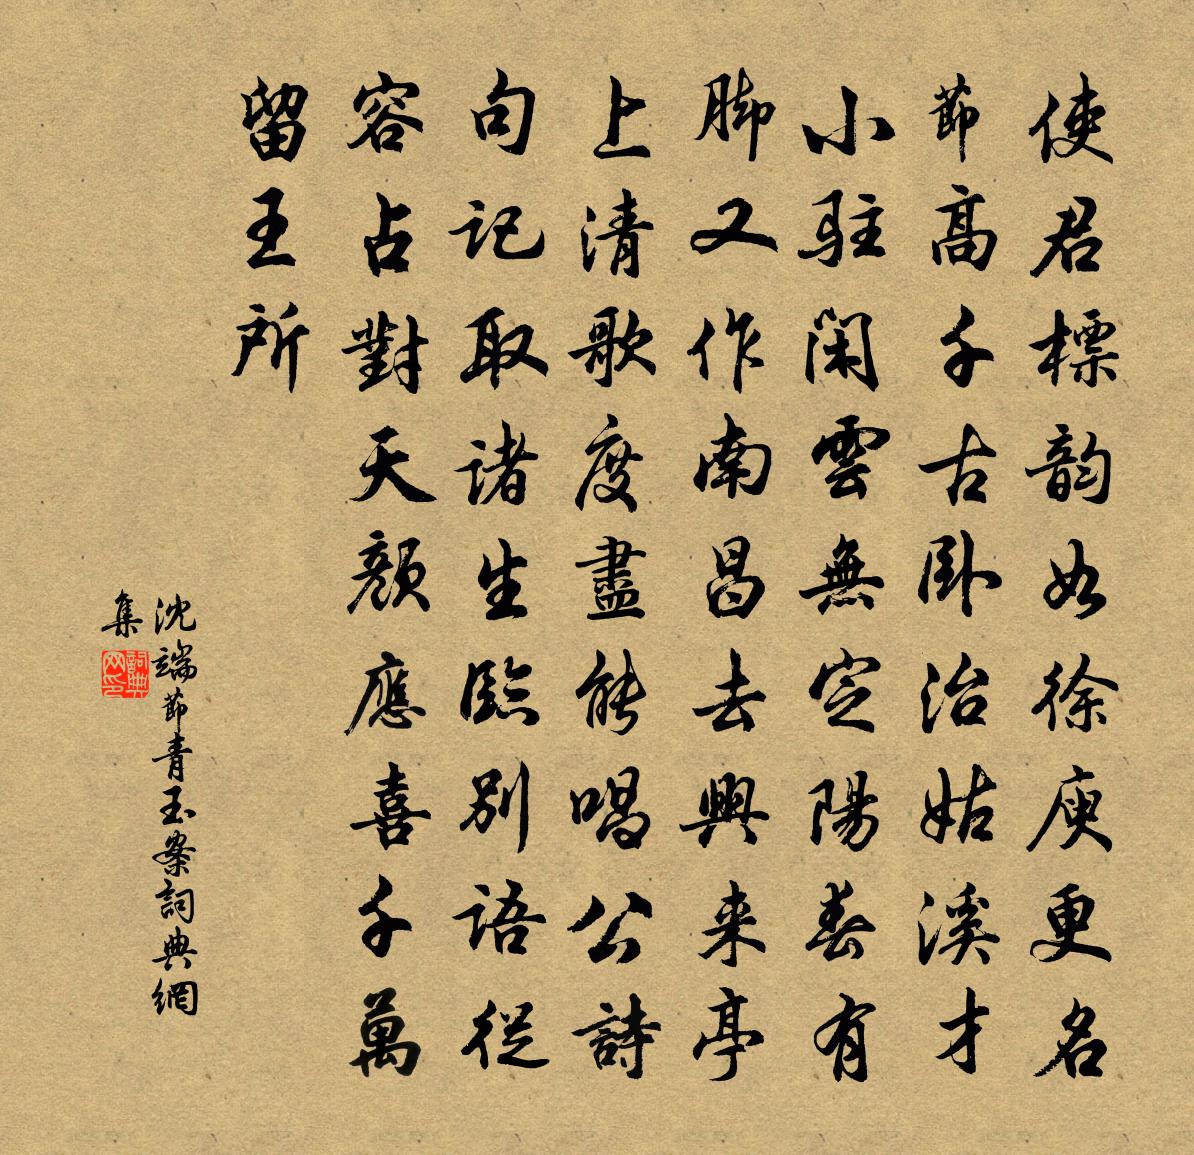 使君標韵如徐庾更名
節高千古卧治姑溪才
小駐閑雲無定陽春有
脚又作南昌去興来亭
上清歌度盡能唱公詩
句記取諸生臨別語從
容占對天顔應喜千萬
留王所
沈端節青玉案詞典網
集
詞典网印